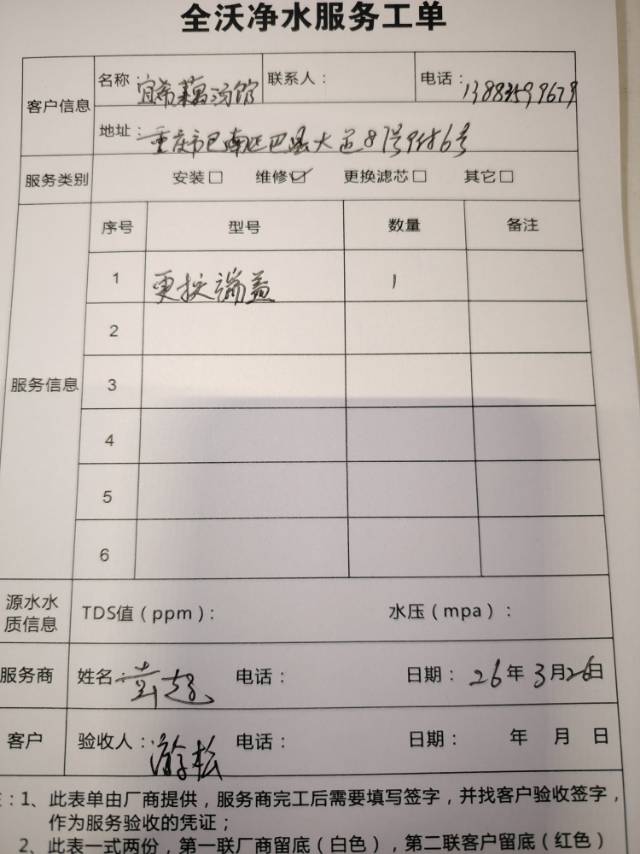 全沃净水服务工单
客户信息
名称：宜希莱酒馆 联系人： 电话：13883599679
地址：重庆市巴南区巴县大道87号9附6号
服务类别 安装□ 维修☑ 更换滤芯□ 其它□
服务信息
序号 型号 数量 备注
1 更换端盖 1
2
3
4
5
6
源水水质信息 TDS值（ppm）： 水压（mpa）：
服务商 姓名： 电话： 日期：26年3月26日
客户 验收人：游松 电话： 日期： 年 月 日
：1、此表单由厂商提供，服务商完工后需要填写签字，并找客户验收签字，
作为服务验收的凭证；
2、此表一式两份，第一联厂商留底（白色），第二联客户留底（红色）